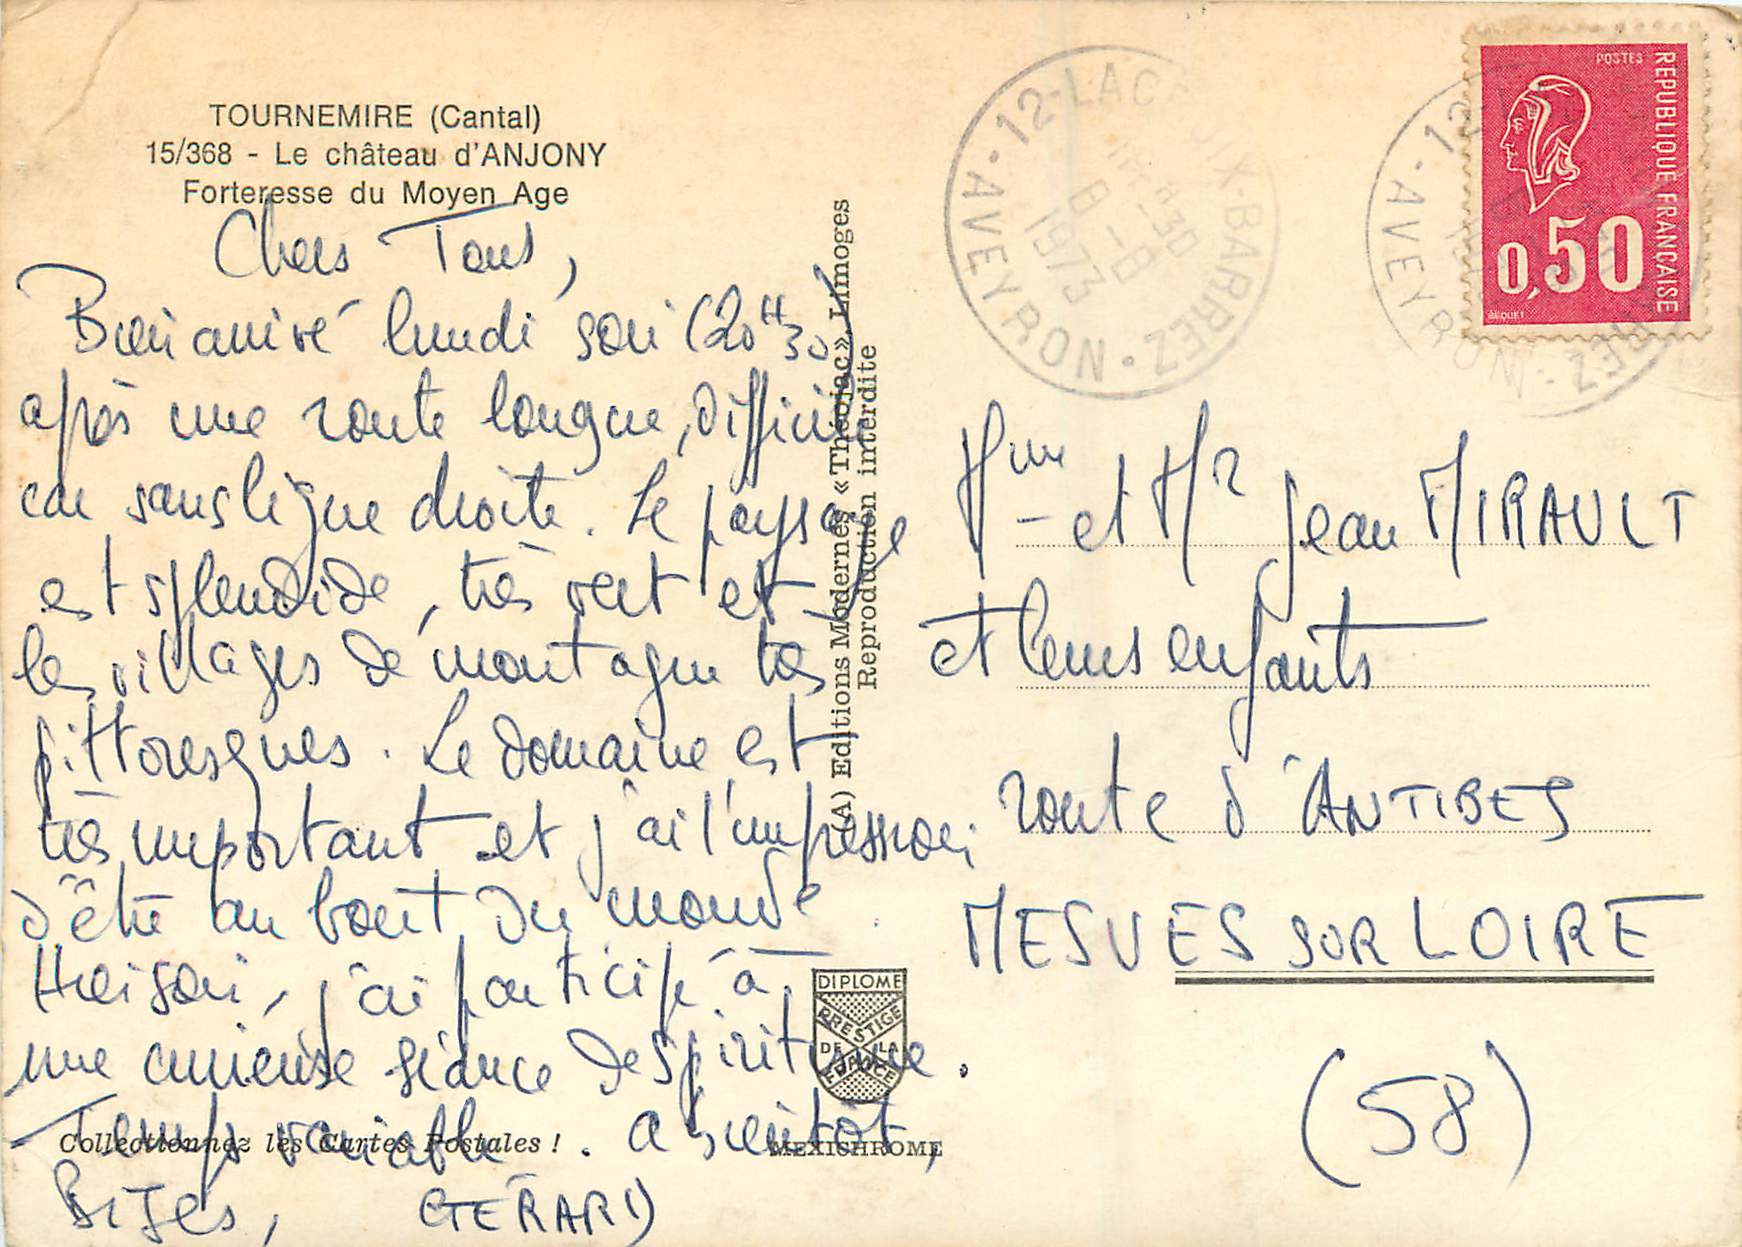 TOURNEMIRE (Cantal)
15/368 - Le château d'ANJONY
Forteresse du Moyen Age
Chers Tous,
Bien arrivé lundi soir (20H30)
après une route longue, difficile
car sans ligne droite. Le paysage
est splendide, très vert et
les villages de montagne très
pittoresques. Le domaine est
très important et j'ai l'impression
d'être au bout du monde
Hier soir, j'ai participé à
une curieuse séance de spiritisme.
Temps variable. A bientôt,
Bises, GÉRARD
Collectionnez les Cartes Postales !
(A) Editions Modernes « Théojac », Limoges
Reproduction interdite
DIPLOME
PRESTIGE
DE LA
FRANCE
MEXICHROME
12-LACROIX-BARREZ
AVEYRON
18H30
8-8
1973
POSTES
REPUBLIQUE FRANCAISE
0,50
BEQUET
12
AVEYRON
BARREZ
Mme et Mr Jean MIRAULT
et leurs enfants
route d'ANTIBES
MESVES SUR LOIRE
(58)